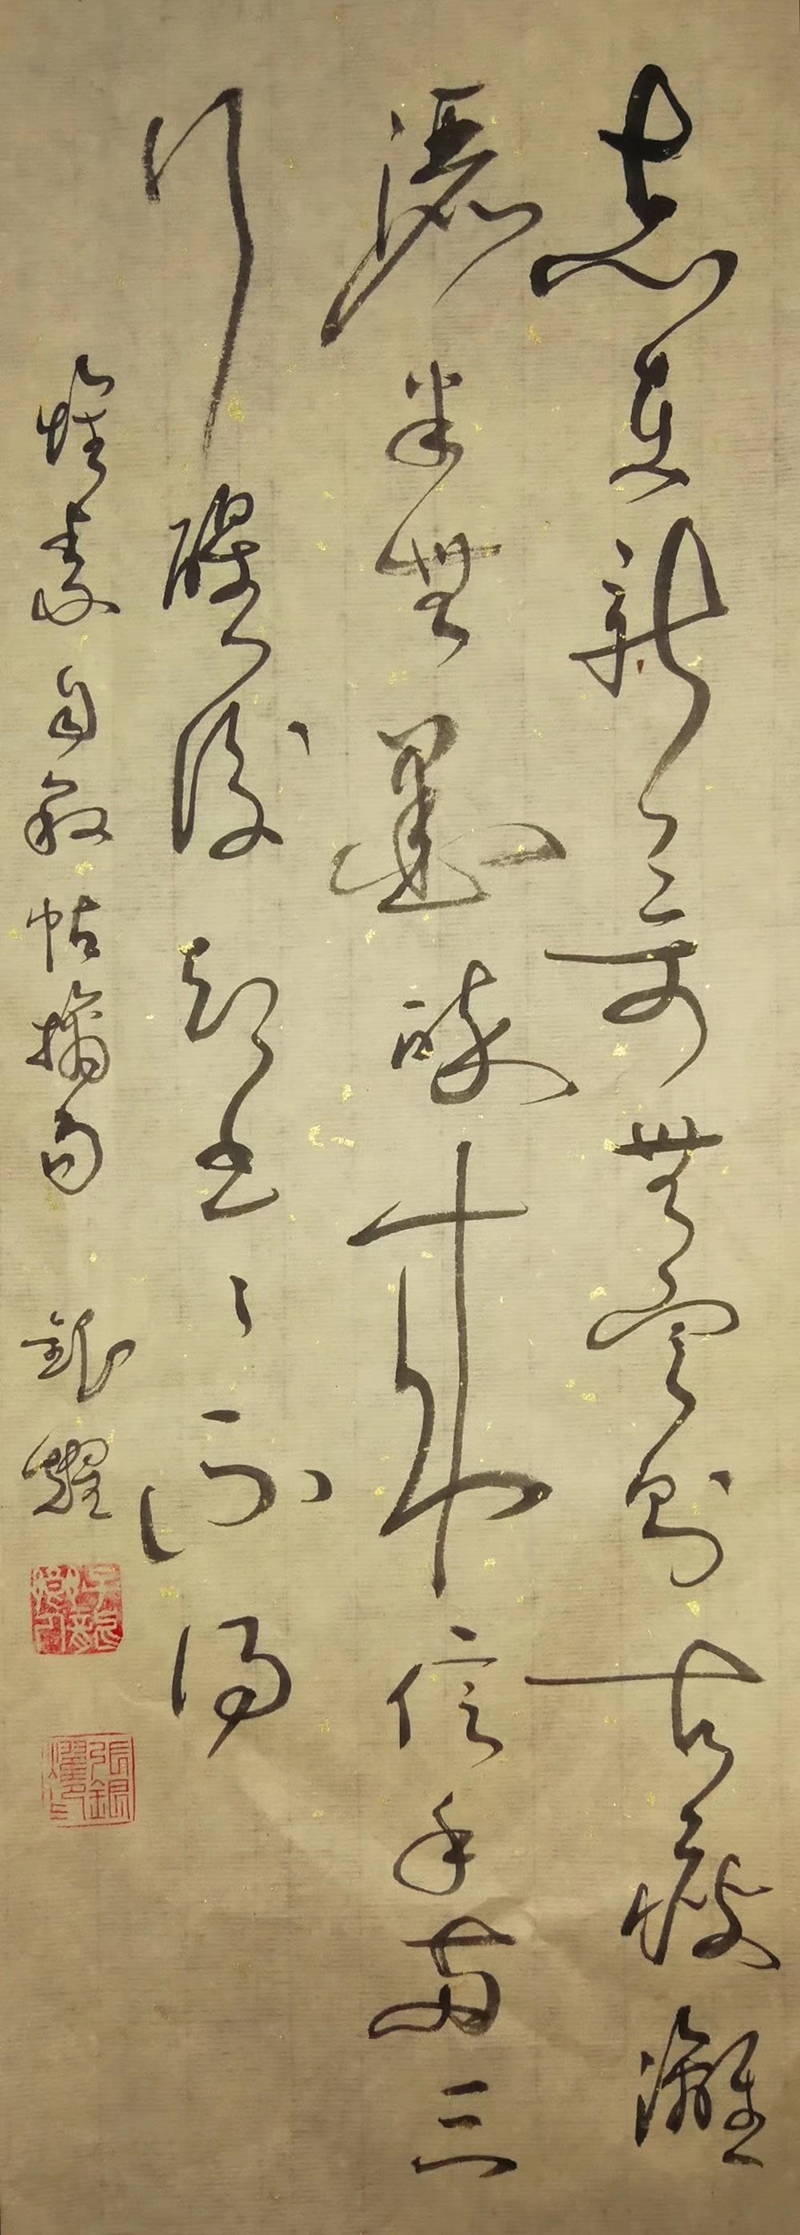 志在新奇無定則古瘦灕
灑半無墨醉來信手兩三
行醒後却書〻不得
懷素自敘帖摘句 銀耀
張銀耀印